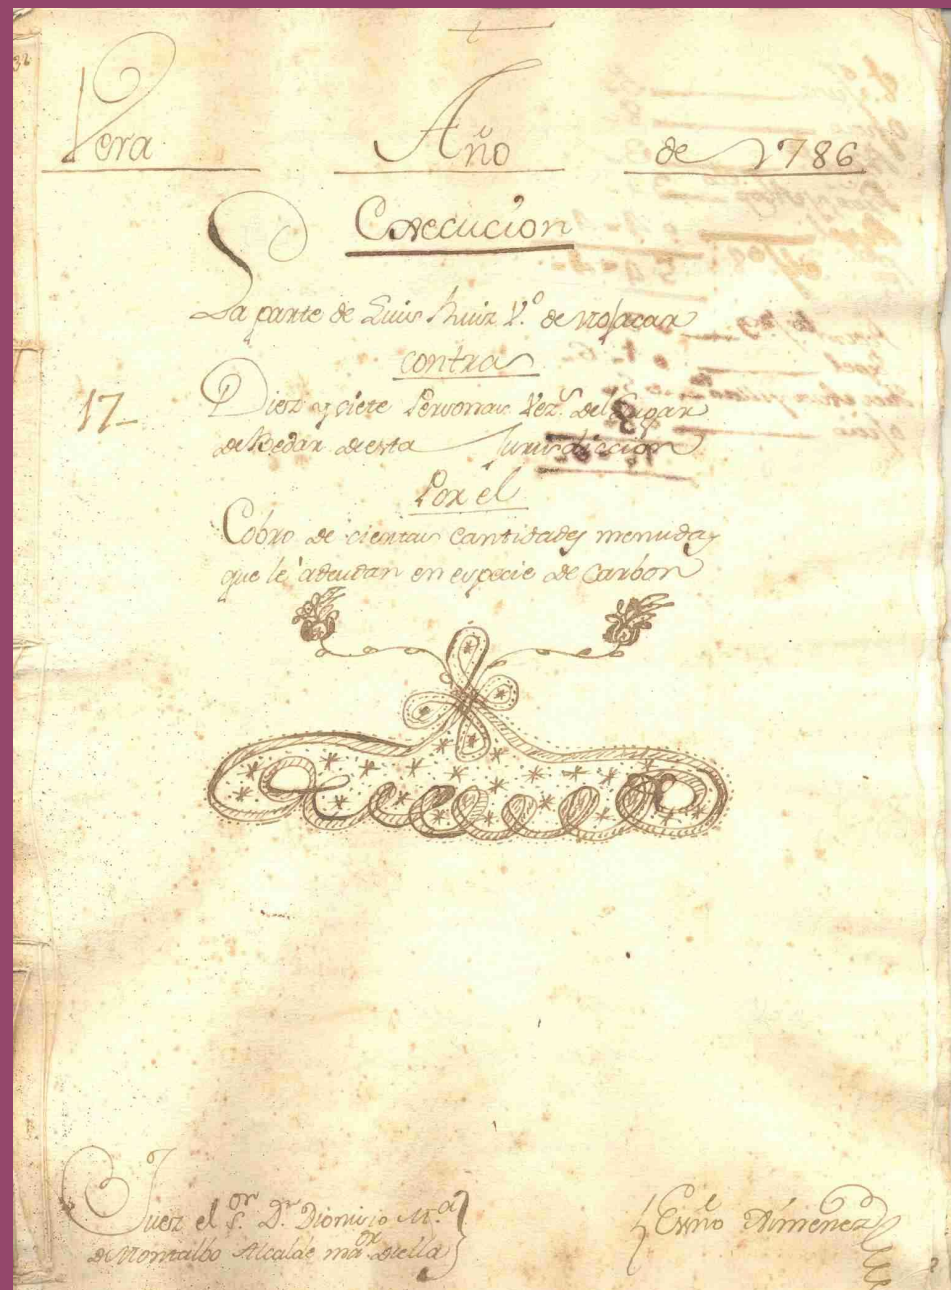 32
Vera Año de 1786
Execucion
La parte de Luis Ruiz V.º de Mojacar
contra
17_ Diez y siete Personas Vez.s del Lugar
de Bedar de esta Jurisdiccion
Por el
Cobro de ciertas cantidades menudas
que le adeudan en especie de Carbon
Juez el S.or D.n Dionisio M.a
de Montalbo Alcalde ma.or de ella
El Essno Ximenez